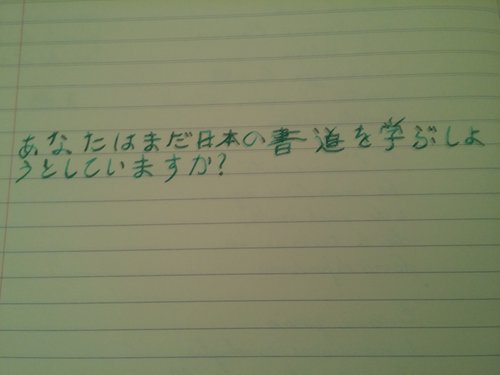 あなたはまだ日本の書道を学ぶしよ
うとしていますか?